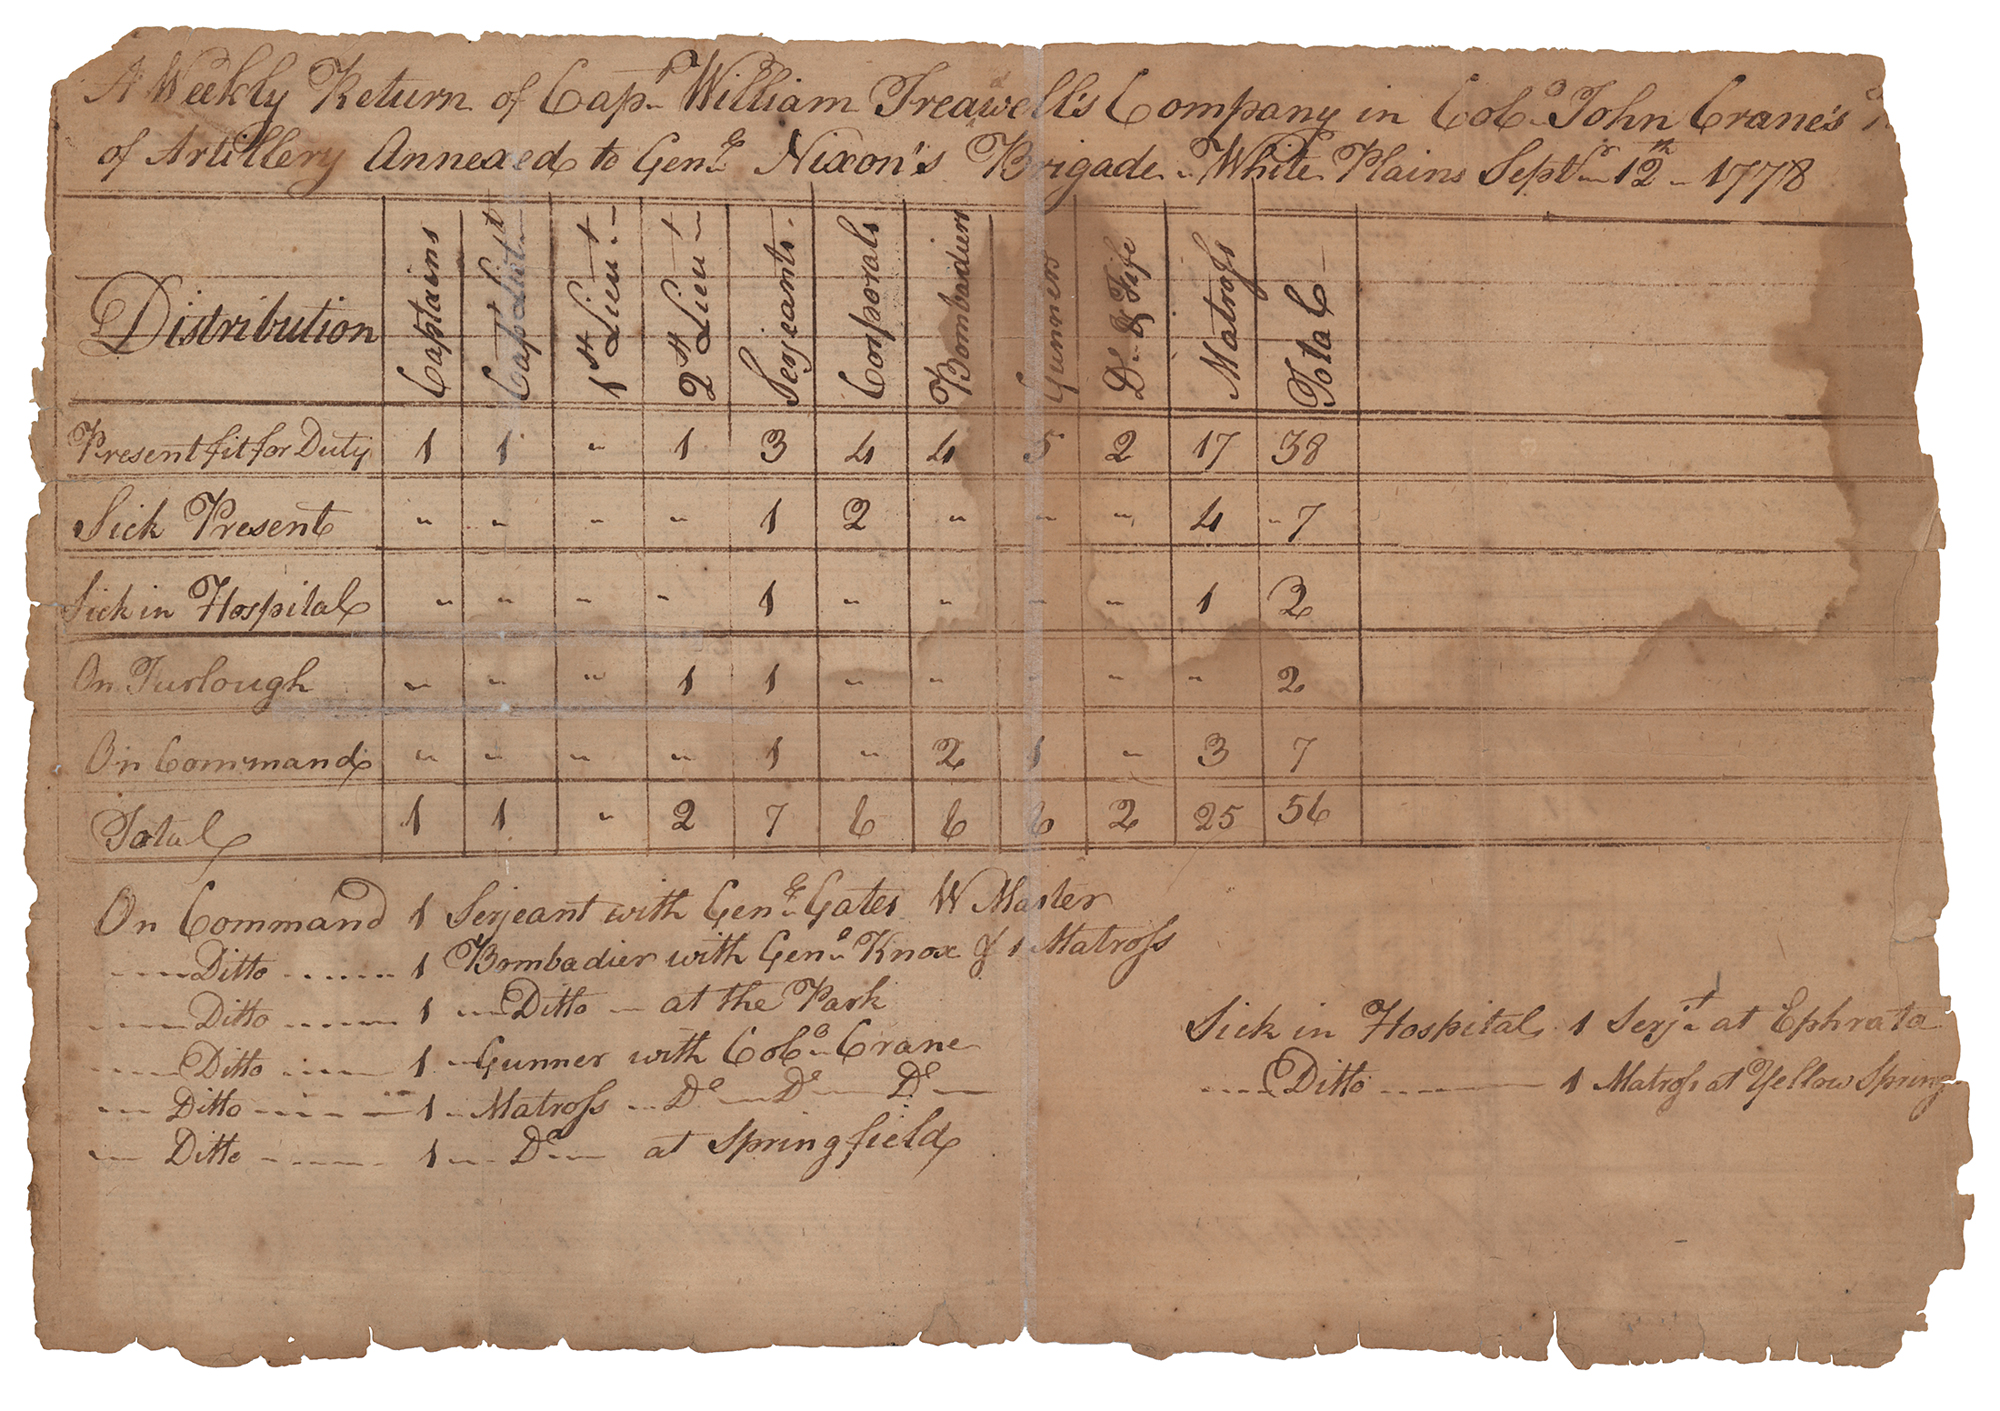 A Weekly Return of Capt. William Treawell's Company in Colo. John Crane's
of Artillery Annexed to Genl. Nixon's Brigade White Plains Septr. 12th 1778
Distribution Captains Capt Lieut 1st Lieut 2st Lieut Serjeants Corporals Bombadiers Gunners Dr. & Fife Matross Total
Present fit for Duty 1 1 " 1 3 4 4 5 2 17 38
Sick Present " " " " 1 2 " " " 4 " 7
Sick in Hospital " " " " 1 " " " " 1 2
On Furlough " " " 1 1 " " " " " 2
On Command " " " " 1 " 2 1 " 3 7
Total 1 1 " 2 7 6 6 6 2 25 56
On Command 1 Serjeant with Genl. Gates W Master
Ditto 1 Bombadier with Genl. Knox & 1 Matross
Ditto 1 Ditto at the Park
Ditto 1 Gunner with Colo. Crane
Ditto 1 Matross Do Do Do
Ditto 1 Do at Springfield
Sick in Hospital 1 Serjt. at Ephrata
Ditto 1 Matross at Yellow Spring